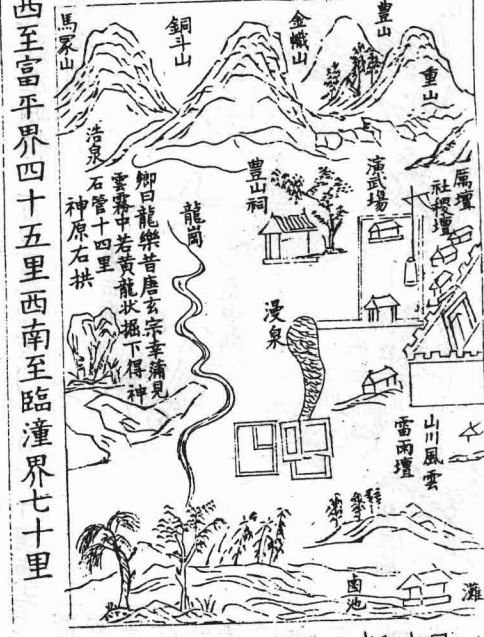 豊山
重山
金幟山
銅斗山
馬冢山
厲壇
社稷壇
演武場
豊山祠
龍崗
浩泉
鄉曰龍樂昔唐玄宗幸蒲見
雲霧中若黃龍狀掘下得神
石管十四里
神原右拱
漫泉
山川風雲
雷雨壇
灘
鹵池
西至富平界四十五里西南至臨潼界七十里